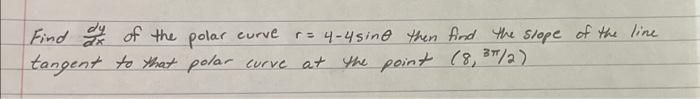 Find dy/dx of the polar curve r = 4-4sinθ then find the slope of the line
tangent to that polar curve at the point (8, 3π/2)